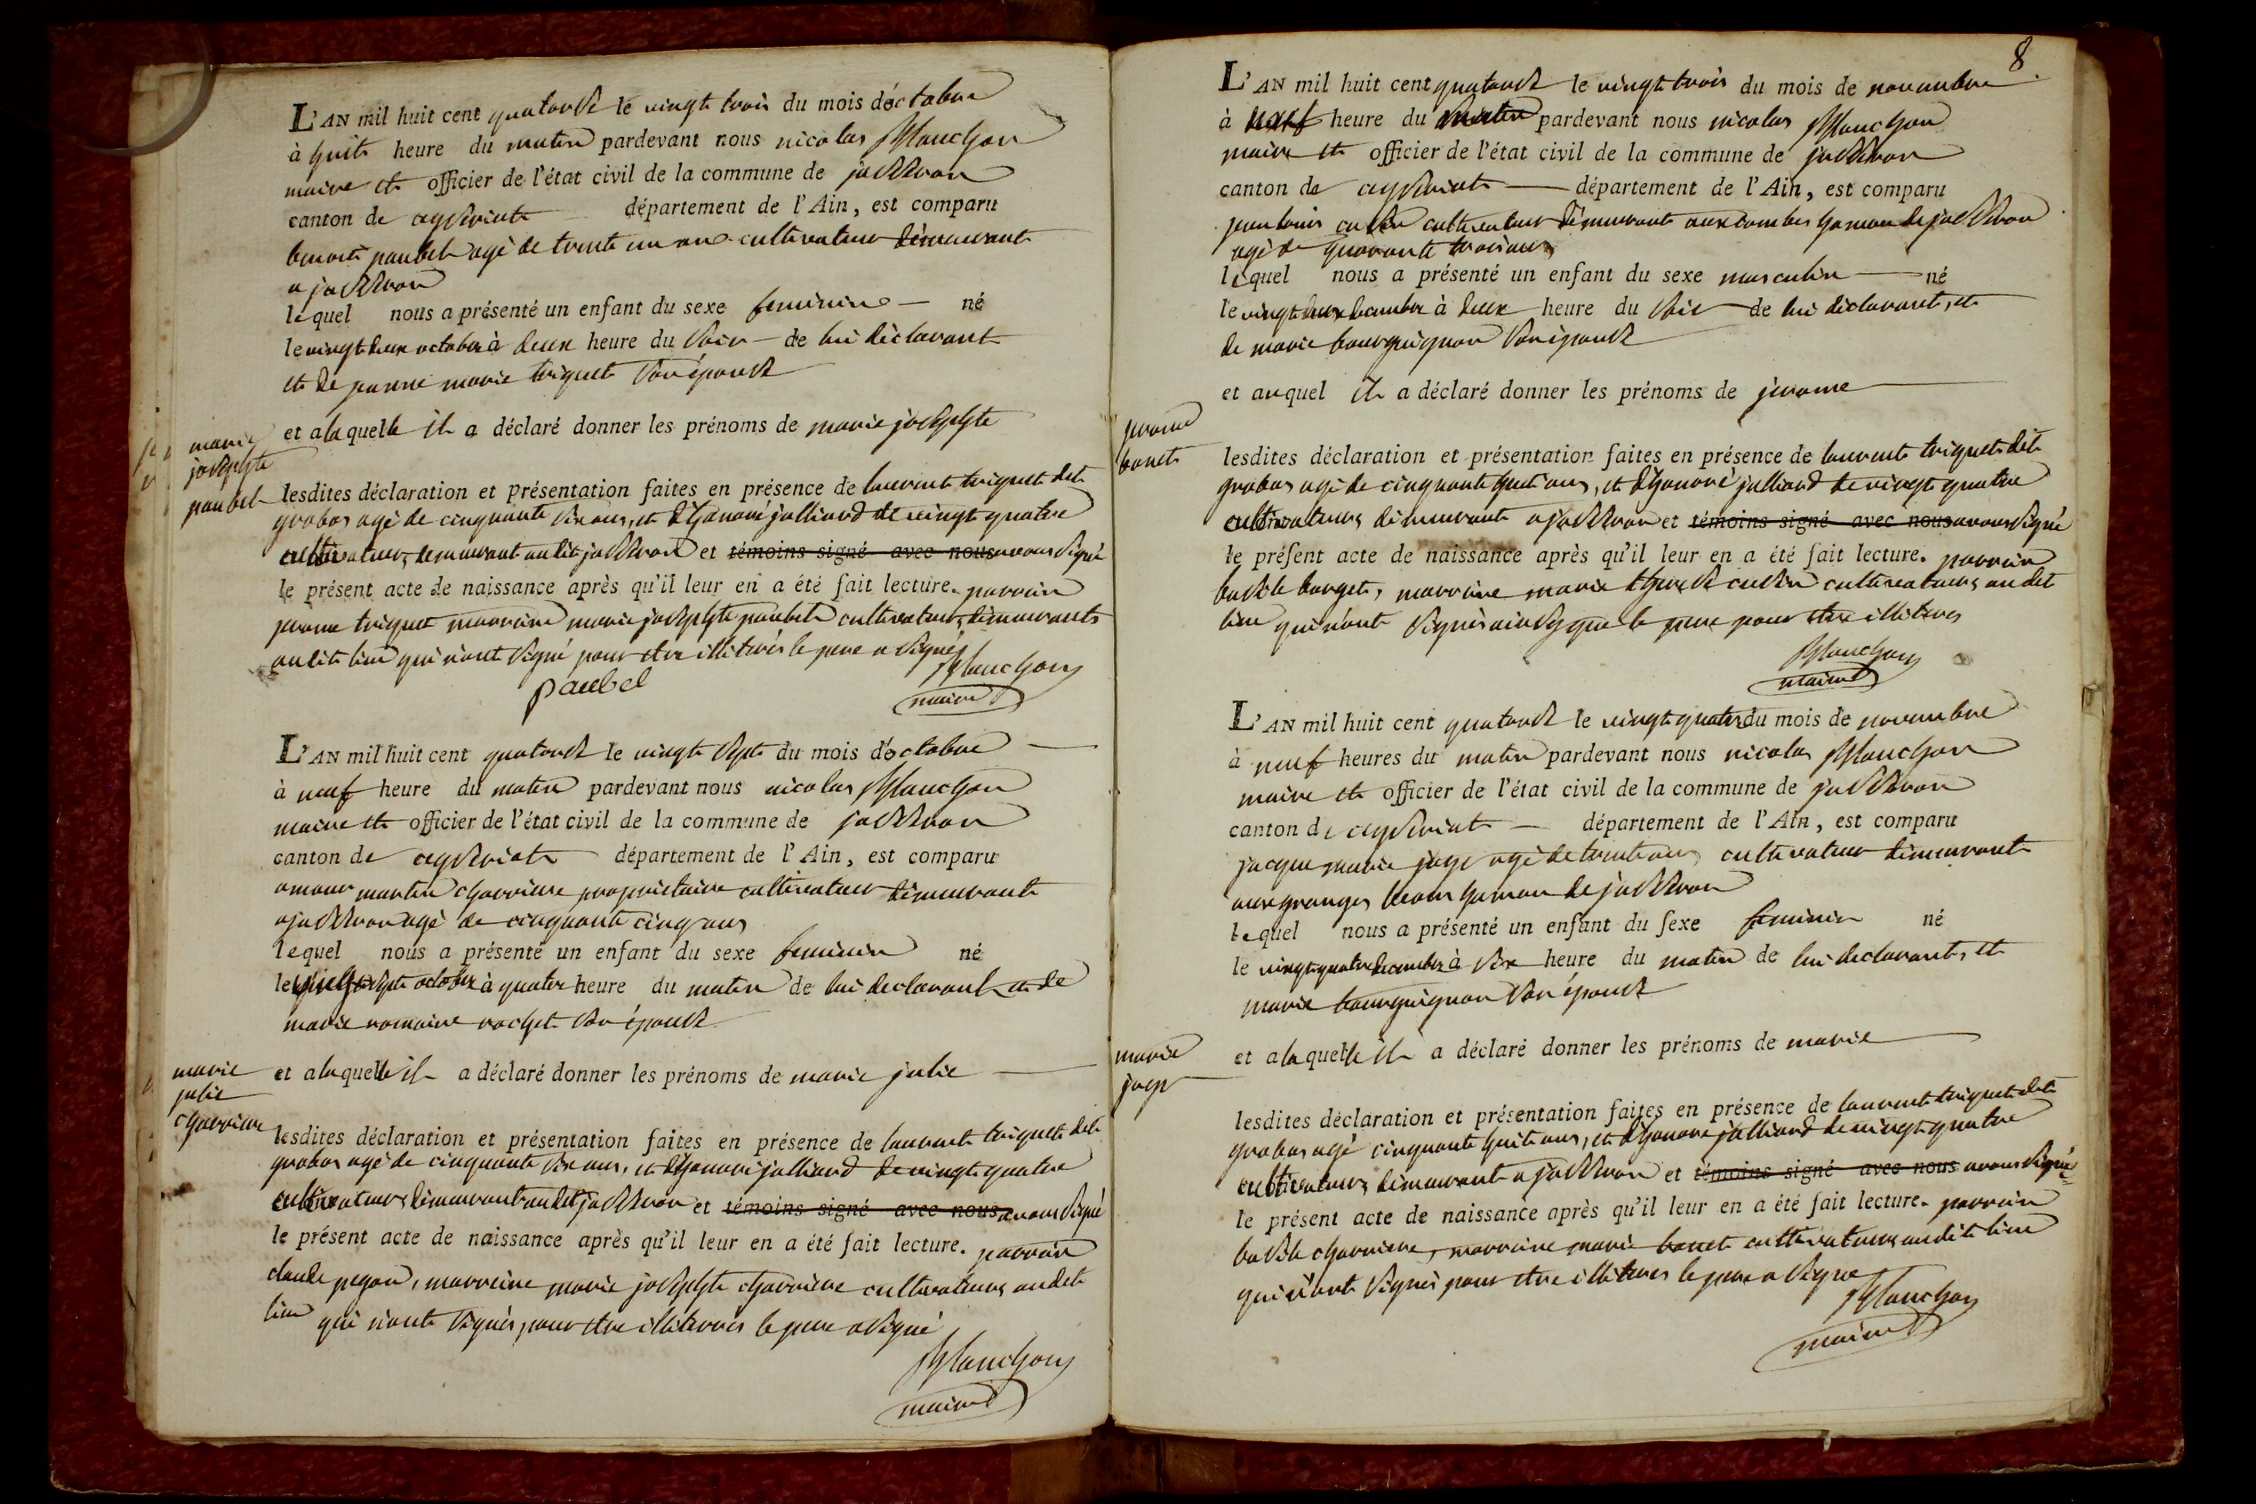 L'AN mil huit cent quatorse le vingt trois du mois d'octobre
à huit heure du matin pardevant nous nicolas planchon
maire et officier de l'état civil de la commune de jasseron
canton de ceyseriat département de l'Ain, est comparu
benoit paubel agé de trente un ans cultivateur démeurant
a jasseron
lequel nous a présenté un enfant du sexe feminin — né
le vingt deux octobre à deux heure du soir — de lui déclarant
et de jeanne marie triquet son épouse
et a laquelle il a déclaré donner les prénoms de marie josephte
marie
josephte
paubel
lesdites déclaration et présentation faites en présence de laurent triquet dit
grobas agé de cinquante six ans, et d'honoré jolliard de vingt quatre
cultivateurs demeurant audit jasseron et témoins signé avec nous avons signé
le présent acte de naissance après qu'il leur en a été fait lecture. parrain
jerome triquet marraine marie josephte paubel cultivateurs démeurants
audit lieu qui n'ont signé pour etre illiterés le pere a signé
paubel
planchon
maire
L'AN mil huit cent quatorse le vingt sept du mois d'octobre
à neuf heure du matin pardevant nous nicolas planchon
maire et officier de l'état civil de la commune de jasseron
canton de ceyseriat département de l'Ain, est comparu
amour martin charriere proprietaire cultivateur démeurant
a jasseron agé de cinquante cinq ans
lequel nous a présenté un enfant du sexe feminin né
le vingt sept octobre à quatre heure du matin de lui declarant et de
marie romaine rochet son épouse
et a laquelle il a déclaré donner les prénoms de marie julie
marie
julie
charriere
lesdites déclaration et présentation faites en présence de laurent triquet dit
grobas agé de cinquante six ans, et d'honoré jolliard de vingt quatre
cultivateurs démeurant audit jasseron et témoins signé avec nous avons signé
le présent acte de naissance après qu'il leur en a été fait lecture. parrain
claude pegon, marreine marie josephte charriere cultivateurs audit
lieu qui n'ont signés, pour etre illiterrés le pere a signé
planchon
maire
8.
L'AN mil huit cent quatorse le vingt trois du mois de novembre
à neuf heure du matin pardevant nous nicolas planchon
maire et officier de l'état civil de la commune de jasseron
canton de ceyseriat — département de l'Ain, est comparu
cultivateur démeurant aux combes hameau de jasseron
agé de quarante trois ans
lequel nous a présenté un enfant du sexe masculin — né
le vingt deux à deux heure du soir — de lui déclarant, et
de marie bourguignon son épouse
et auquel il a déclaré donner les prénoms de jerome
jerome
bonet
lesdites déclaration et présentation faites en présence de laurent triquet dit
grobas agé de cinquante huit ans, et d'honoré jolliard de vingt quatre
cultivateurs démeurant a jasseron et témoins signé avec nous avons signé
le présent acte de naissance après qu'il leur en a été fait lecture. parrain
basile borget, marraine marie therese cultivateurs audit
lieu qui n'ont signés ainsy que le pere pour etre illiteres
planchon
maire
L'AN mil huit cent quatorse le vingt quatre du mois de novembre
à neuf heures du matin pardevant nous nicolas planchon
maire et officier de l'état civil de la commune de jasseron
canton de ceyseriat — département de l'Ain, est comparu
jacque marie agé de trente ans cultivateur démeurant
aux granges hameau de jasseron
lequel nous a présenté un enfant du sexe feminin né
le vingt quatre à six heure du matin de lui declarant, et
marie bourguignon son épouse
et a laquelle il a déclaré donner les prénoms de marie
marie
lesdites déclaration et présentation faites en présence de laurent triquet dit
grobas agé cinquante huit ans, et d'honoré jolliard de vingt quatre
cultivateurs démeurant a jasseron et témoins signé avec nous avons signé
le présent acte de naissance après qu'il leur en a été fait lecture. parrain
basile charriere, marraine marie bonet cultivateurs audit lieu
qui n'ont signés pour etre illiteres le pere a signé
planchon
maire